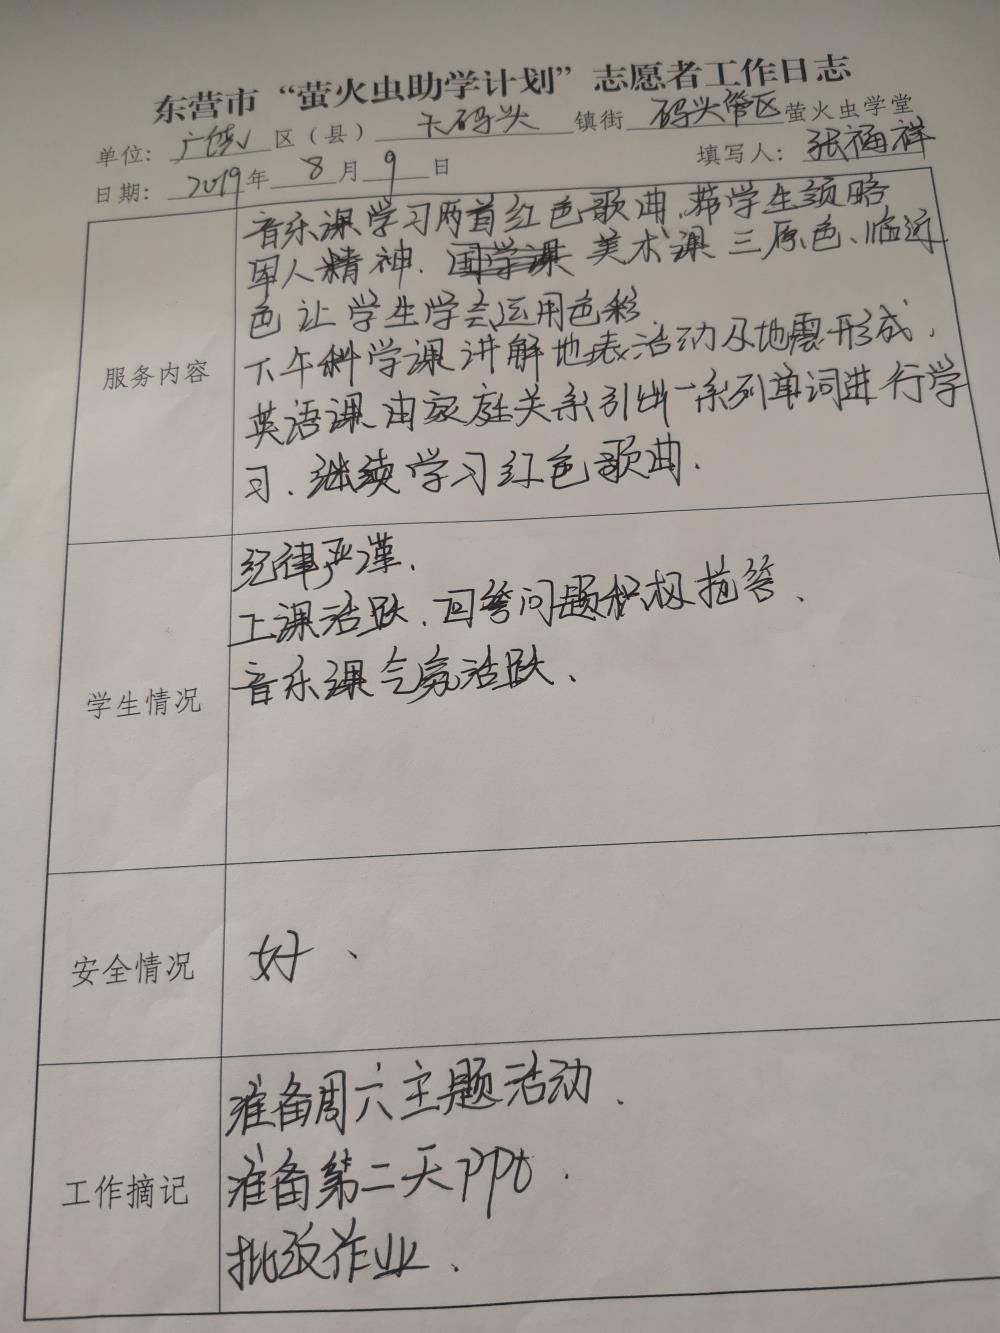 东营市“萤火虫助学计划”志愿者工作日志
单位：广饶 区（县） 大码头 镇街 码头管区 萤火虫学堂
日期：2019年8月9日 填写人：张福祥
服务内容
音乐课学习两首红色歌曲、带学生领略
军人精神．国学课 美术课 三原色、临近
色 让学生学会运用色彩
下午科学课讲解地表活动及地震形成．
英语课由家庭关系引出一系列单词进行学
习．继续学习红色歌曲．
学生情况
纪律严谨．
上课活跃．回答问题积极抢答、
音乐课气氛活跃、
安全情况
好、
工作摘记
准备周六主题活动．
准备第二天ppt．
批改作业．